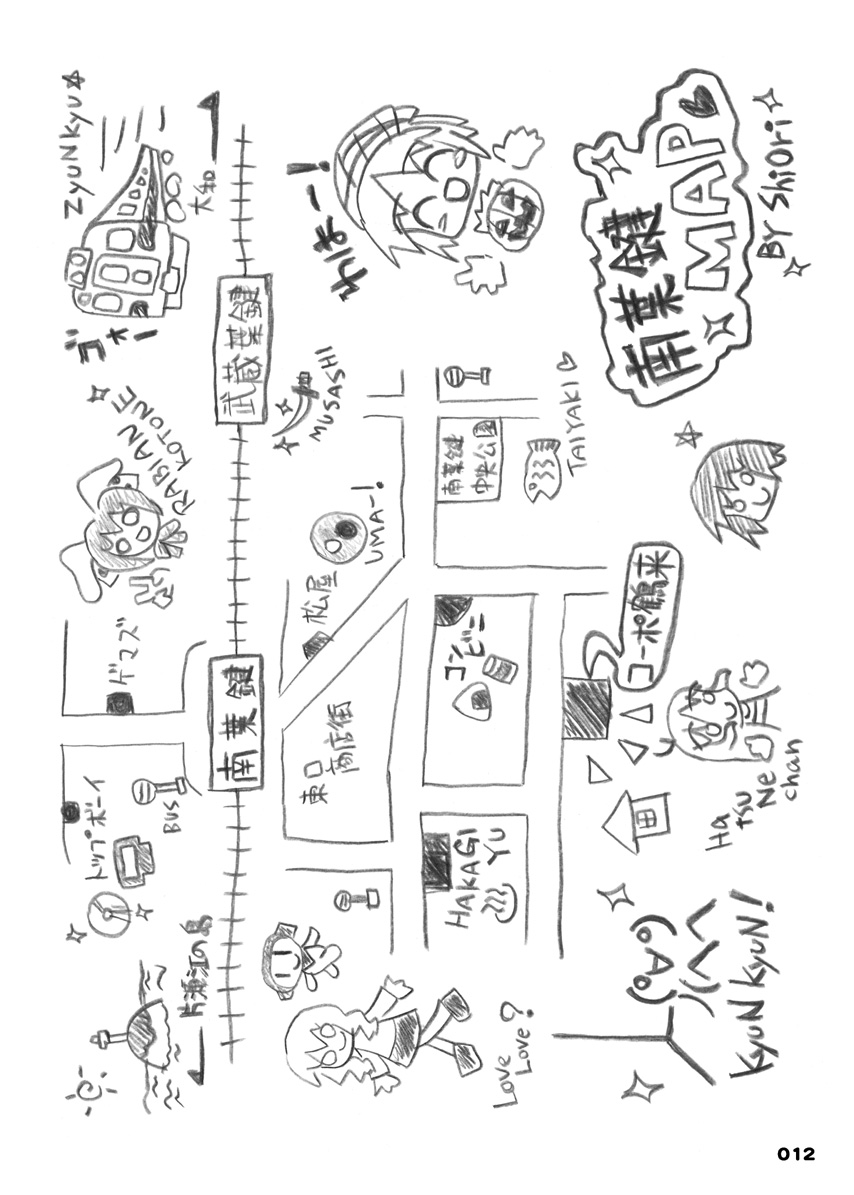 片瀬江の島
トップボーイ
BUS
ゲマズ
RABIAN
KOTONE
ゴォー
ZyuNkyu☆
大知
南葉鍵
武蔵葉鍵
MUSASHI
わはー!
東口
商店街
松屋
UMAー!
Love
Love?
HAKAGI
YU
コンビニ
南葉鍵
中央公園
TAIYAKI♡
コーポ鶴来
Ha
tsu
Ne
chan
KyuN KyuN!
南葉鍵
MAP♥
BY ShiOri
012